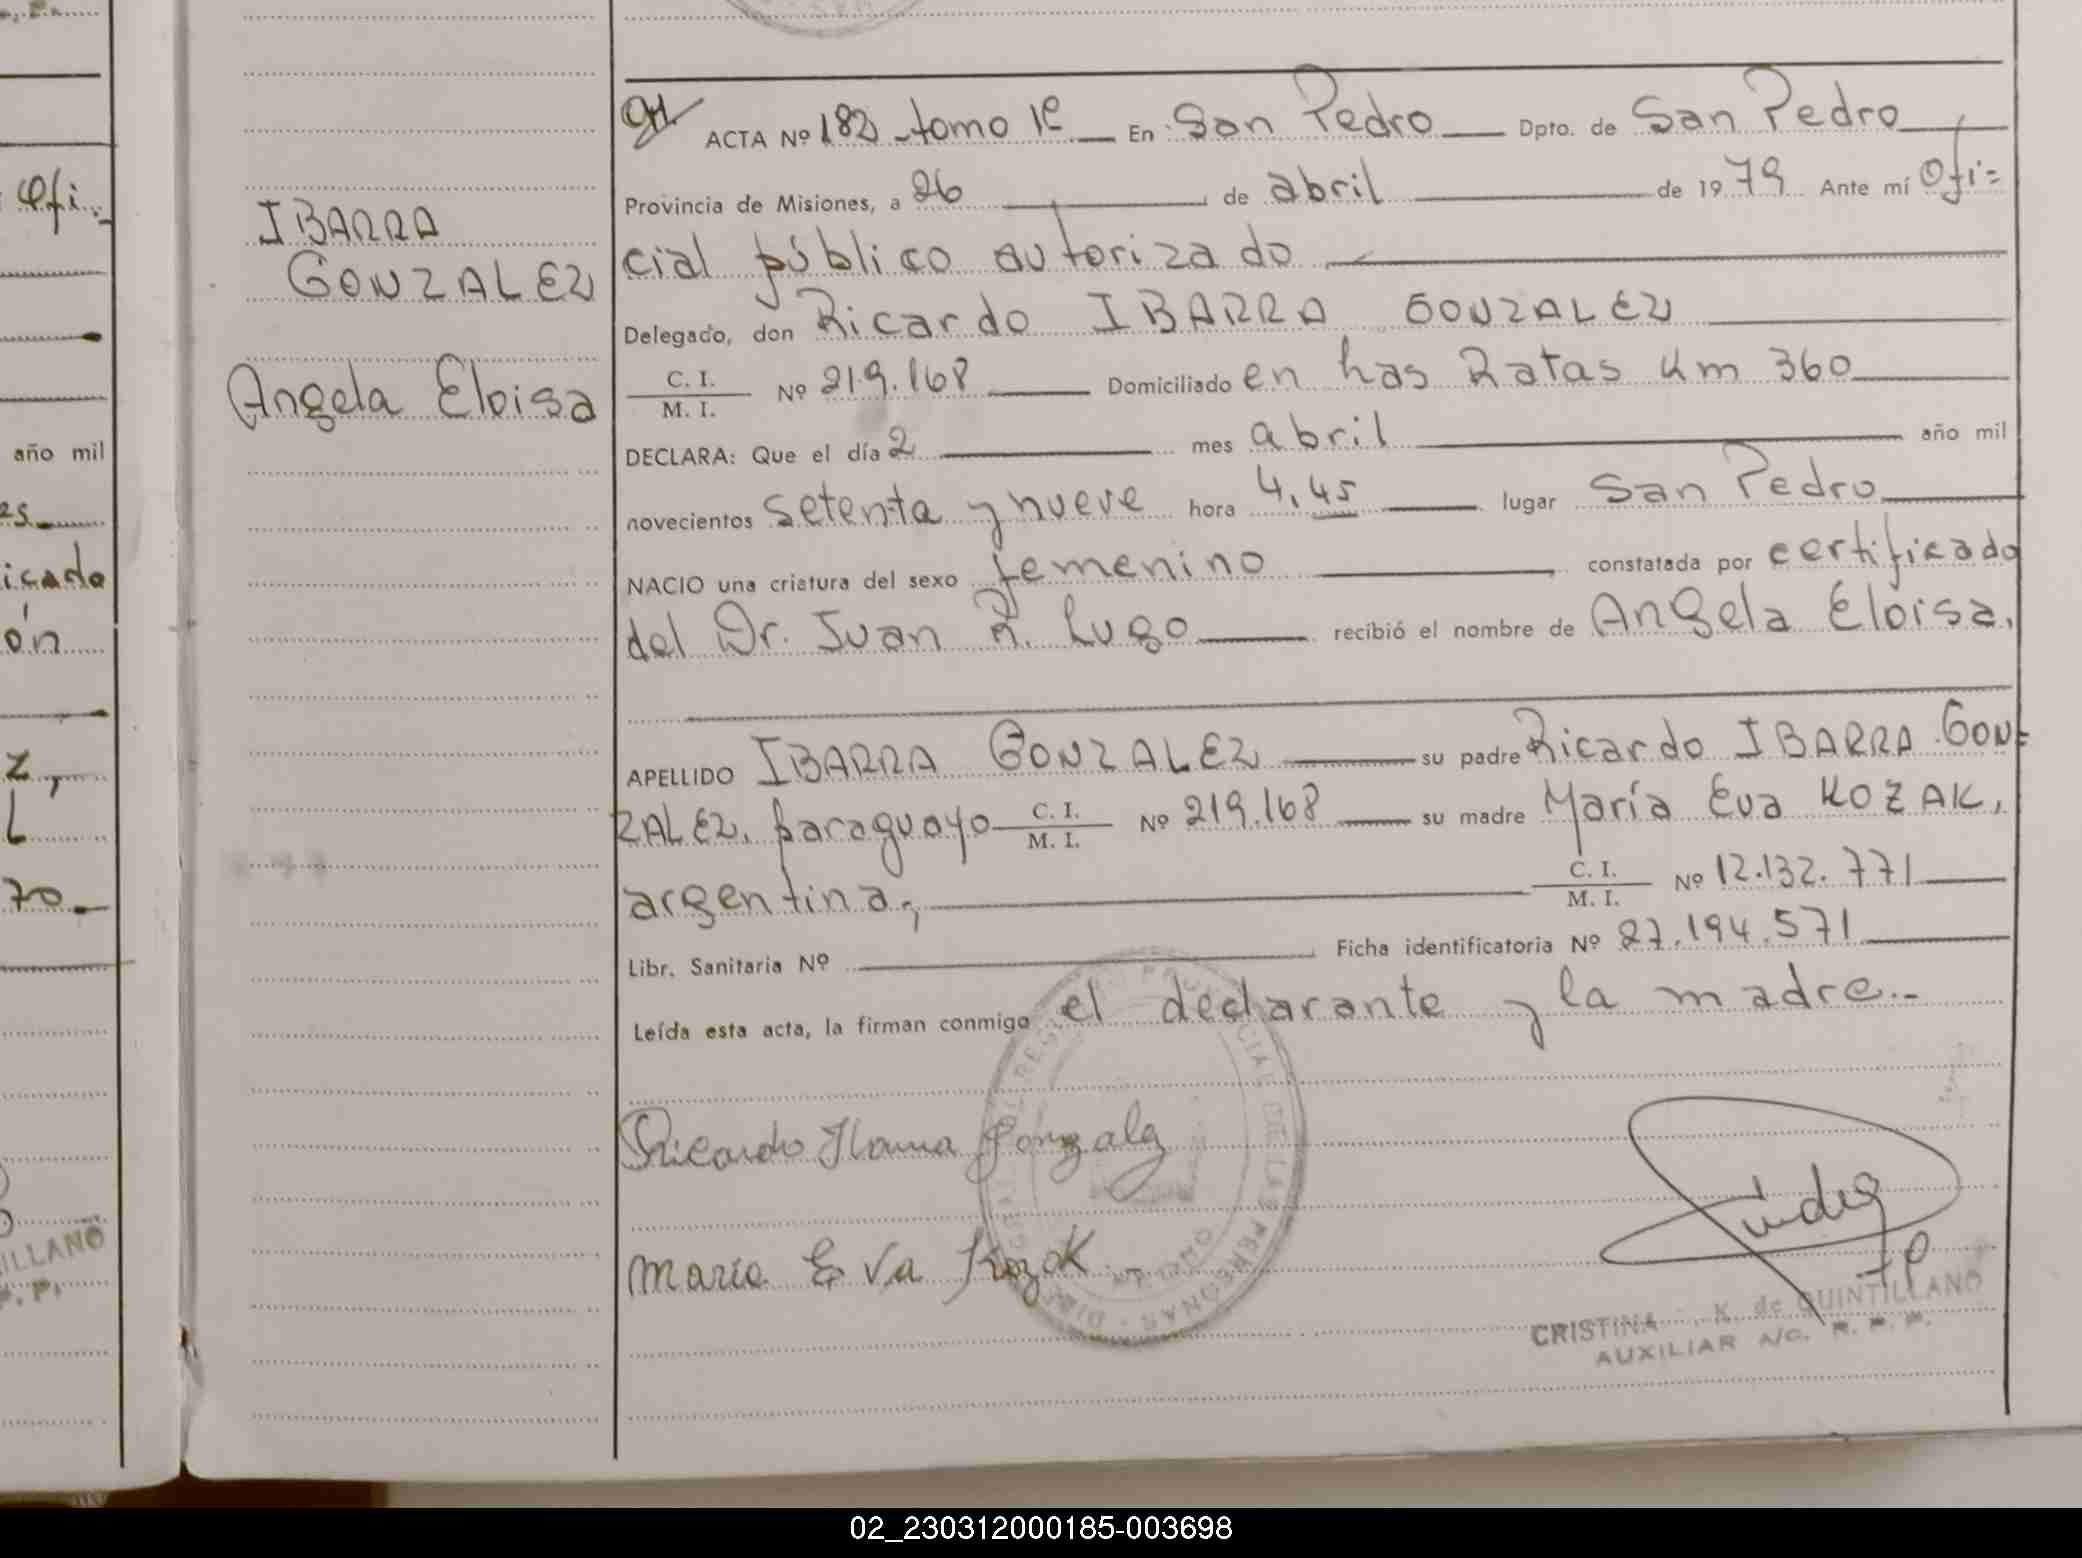 IBARRA
GONZALEZ
Angela Eloisa
ACTA Nº 182 - tomo 1º En San Pedro Dpto. de San Pedro
Provincia de Misiones, a 26 de abril de 1979 Ante mí Ofi=
cial público autorizado
Delegado, don Ricardo IBARRA GONZALEZ
C. I.
M. I. Nº 219.168 Domiciliado en Las Ratas Km 360
DECLARA: Que el día 2 mes abril año mil
novecientos setenta y nueve hora 4,45 lugar San Pedro
NACIO una criatura del sexo femenino constatada por certificado
del Dr. Juan R. Lugo recibió el nombre de Angela Eloisa.
APELLIDO IBARRA GONZALEZ su padre Ricardo IBARRA GON=
ZALEZ, paraguayo C. I. M. I. Nº 219.168 su madre María Eva KOZAK,
argentina, C. I. M. I. Nº 12.132.771
Libr. Sanitaria Nº Ficha identificatoria Nº 27.194.571
Leída esta acta, la firman conmigo el declarante y la madre.-
Ricardo Ibarra Gonzalez
Maria Eva Kozak
CRISTINA K. de QUINTILLANO
AUXILIAR A/C. R. P. P.
Ofi.
año mil
es
icado
ón
z,
L
70
ILLANO
02_230312000185-003698